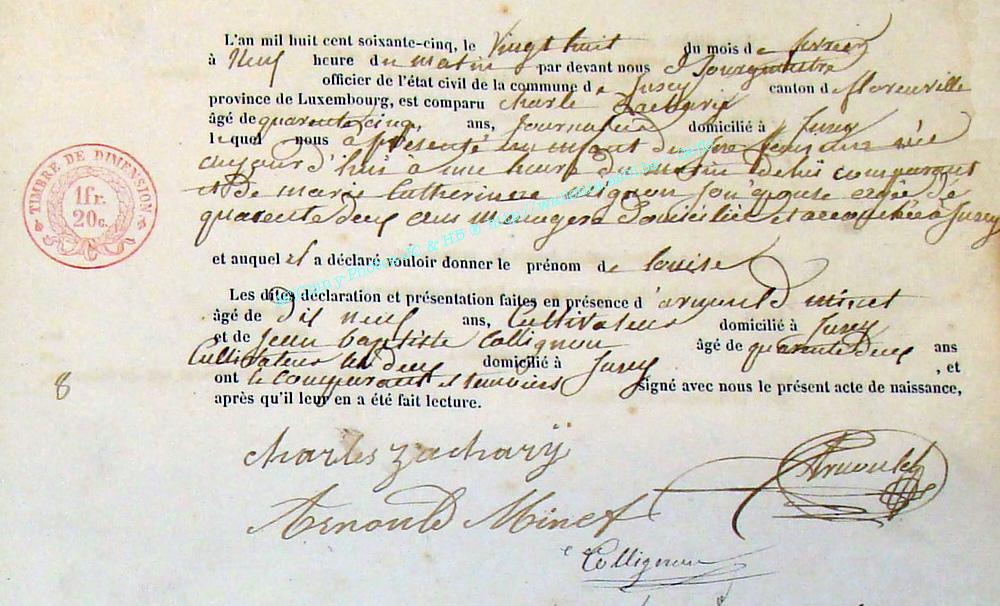 L'an mil huit cent soixante-cinq, le Vingt huit du mois de fevrier
à Neuf heure du matin par devant nous Bourgmestre
officier de l'état civil de la commune de Jusey canton de florenville
province de Luxembourg, est comparu Charle Zacharie
âgé de quarente cinq, ans, Journalier domicilié à Jusey
lequel nous à présenté un enfant du sexe féminin née
aujour d'huis à une heure du matin de lui comparant
et De marie Catherinne Collignon son épouse agée de
quarente deux ans menagere Domicilié et accouchée à Jusey
et auquel il a déclaré vouloir donner le prénom de louise
Les dites déclaration et présentation faites en présence d'arnould minet
âgé de dix neuf ans, Cultivateur domicilié à Jusey
et de Jean baptiste Collignon âgé de quarente Deux ans
Cultivateur les deux domicilié à Jusey, et
ont le comparant et temoins signé avec nous le présent acte de naissance,
après qu'il leur en a été fait lecture.
TIMBRE DE DIMENSION
1fr.
20c.
8
charles zacharÿ
Arnould
Arnould Minet
Collignon